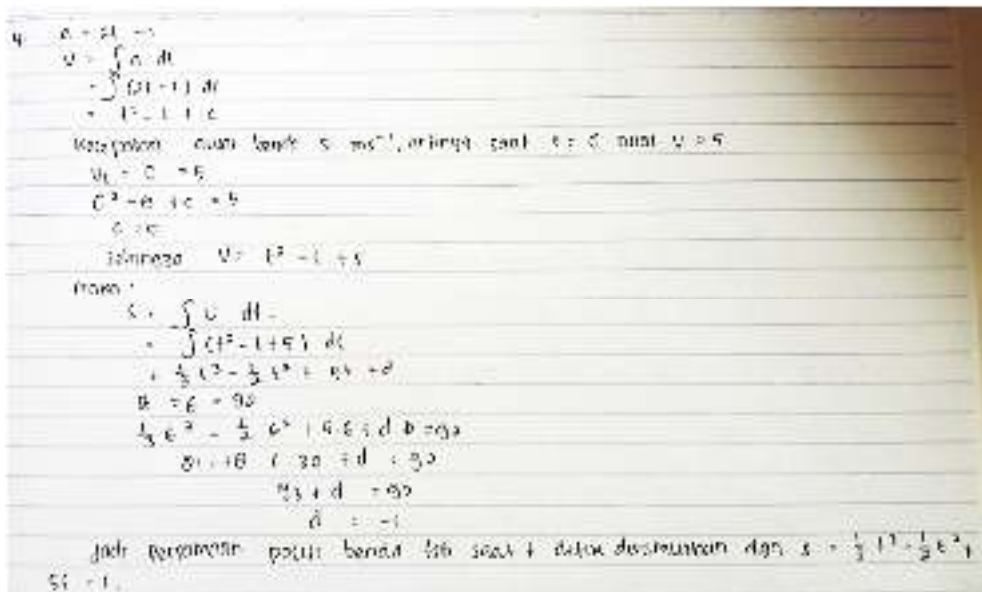 4 a = 2t - 1
v = ∫ a dt
= ∫ (2t - 1) dt
= t² - t + c
Kecepatan awal benda 5 ms⁻¹, artinya saat t = 0 nilai v = 5
= 5
0² - 0 + c = 5
c = 5
Sehingga v = t² - t + 5
maka :
s = ∫ v dt
= ∫ (t² - t + 5) dt
= 1/3 t³ - 1/2 t² + 5t + d
= 6 = 92
1/3 6³ - 1/2 6² + 5.6 + d = 92
30 + d = 92
93 + d = 92
d = -1
Jadi persamaan posisi benda saat t detik dirumuskan dgn s = 1/3 t³ - 1/2 t² +
5t - 1.